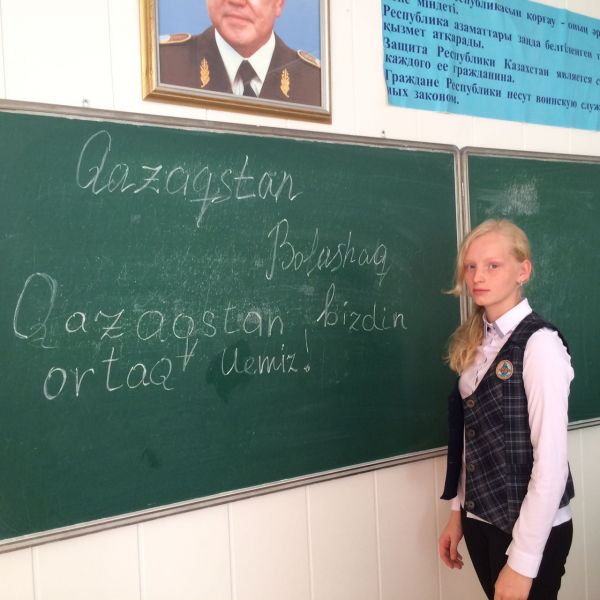 публикасын қорғау - оның әр
не міндеті.
Республика азаматтары заңда белгіленген т
қызмет атқарады.
Защита Республики Казахстан является с
каждого ее гражданина.
Граждане Республики несут воинскую служ
мых законом.
Qazaqstan
Bolashaq
Qazaqstan bizdin
ortaq uemiz!